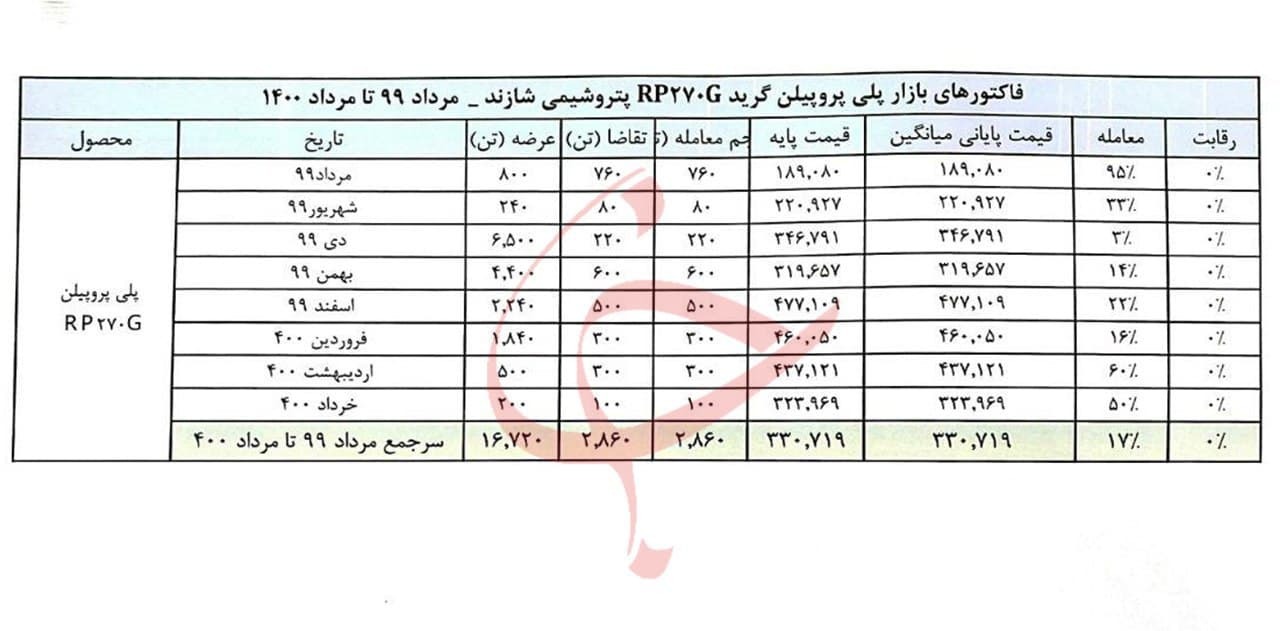 فاکتورهای بازار پلی پروپیلن گرید RP۲۷۰G پتروشیمی شازند _ مرداد ۹۹ تا مرداد ۱۴۰۰
محصول تاریخ عرضه (تن) تقاضا (تن) جم معامله (ت قیمت پایه قیمت پایانی میانگین معامله رقابت
مرداد۹۹ ۸۰۰ ۷۶۰ ۷۶۰ ۱۸۹,۰۸۰ ۱۸۹,۰۸۰ ۹۵٪ ۰٪
شهریور۹۹ ۲۴۰ ۸۰ ۸۰ ۲۲۰,۹۲۷ ۲۲۰,۹۲۷ ۳۳٪ ۰٪
دی ۹۹ ۶,۵۰۰ ۲۲۰ ۲۲۰ ۳۴۶,۷۹۱ ۳۴۶,۷۹۱ ۳٪ ۰٪
بهمن ۹۹ ۴,۴۰۰ ۶۰۰ ۶۰۰ ۳۱۹,۶۵۷ ۳۱۹,۶۵۷ ۱۴٪ ۰٪
پلی پروپیلن
RP۲۷۰G
اسفند ۹۹ ۲,۲۴۰ ۵۰۰ ۵۰۰ ۴۷۷,۱۰۹ ۴۷۷,۱۰۹ ۲۲٪ ۰٪
فروردین ۴۰۰ ۱,۸۴۰ ۳۰۰ ۳۰۰ ۴۶۰,۰۵۰ ۴۶۰,۰۵۰ ۱۶٪ ۰٪
اردیبهشت ۴۰۰ ۵۰۰ ۳۰۰ ۳۰۰ ۴۳۷,۱۲۱ ۴۳۷,۱۲۱ ۶۰٪ ۰٪
خرداد ۴۰۰ ۲۰۰ ۱۰۰ ۱۰۰ ۳۲۳,۹۶۹ ۳۲۳,۹۶۹ ۵۰٪ ۰٪
سرجمع مرداد ۹۹ تا مرداد ۴۰۰ ۱۶,۷۲۰ ۲,۸۶۰ ۲,۸۶۰ ۳۳۰,۷۱۹ ۳۳۰,۷۱۹ ۱۷٪ ۰٪